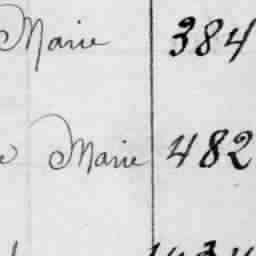 Marie 384
Marie 482